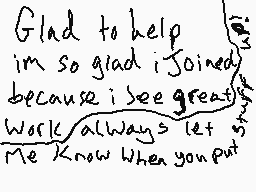 Glad to help
im so glad i Joined
because i see great
work always let
me know when you put
stuff up!